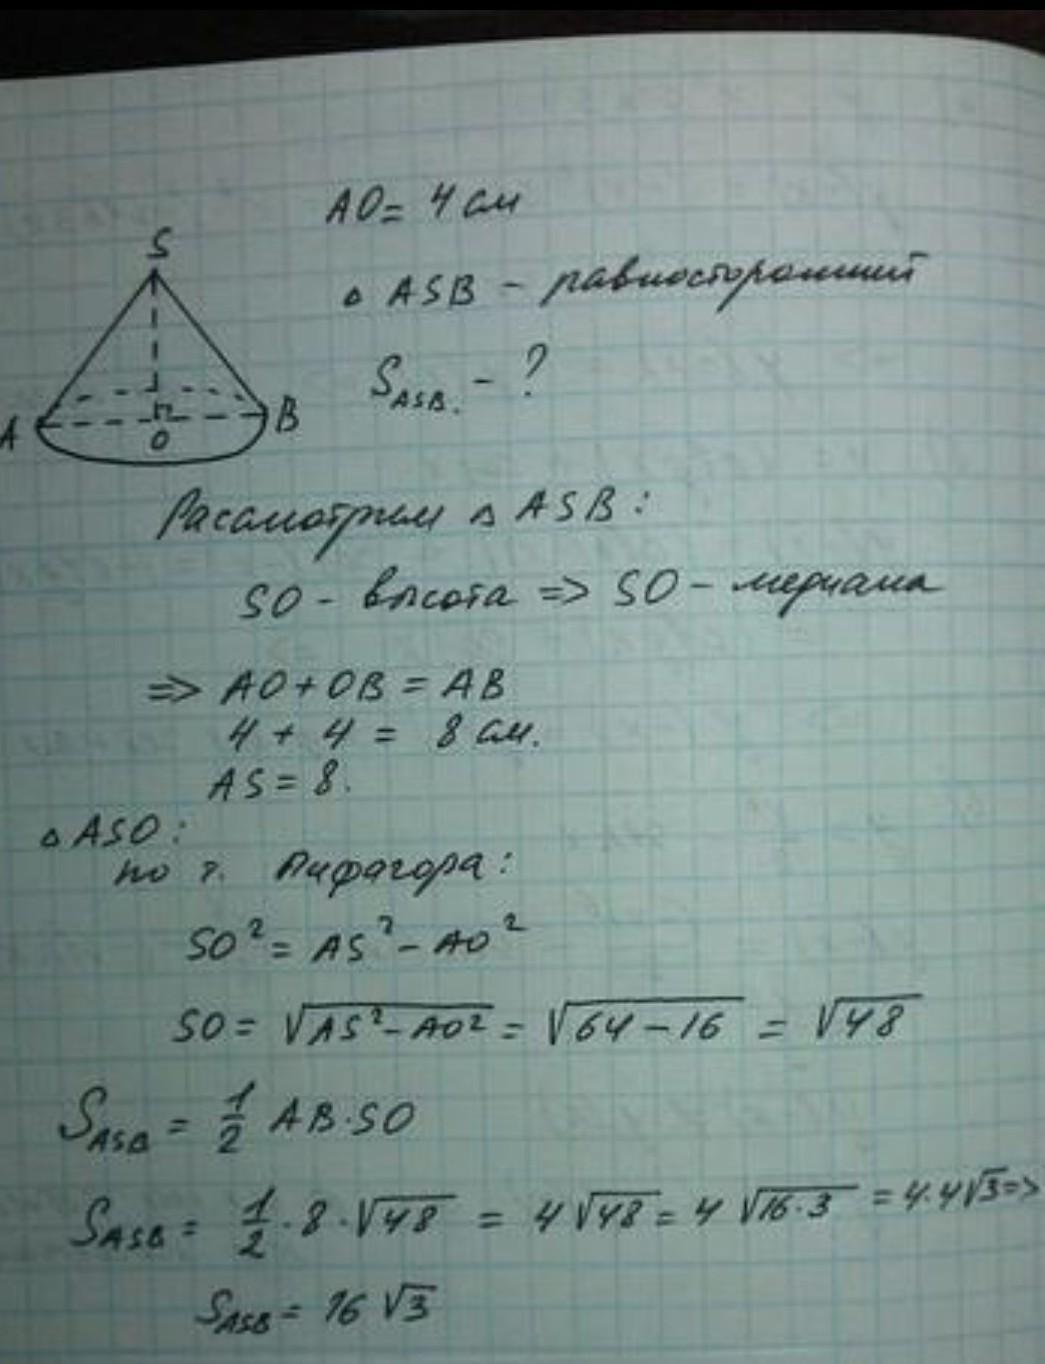 AO = 4 см
S
△ ASB - равносторонний
S_ASB. - ?
A
O
B
Рассмотрим △ ASB:
SO - высота => SO - медиана
=> AO + OB = AB
4 + 4 = 8 см.
AS = 8.
△ ASO:
по т. Пифагора:
SO² = AS² - AO²
SO = √(AS² - AO²) = √(64 - 16) = √48
S_ASB = 1/2 AB · SO
S_ASB = 1/2 · 8 · √48 = 4√48 = 4√(16·3) = 4·4√3 =>
S_ASB = 16√3